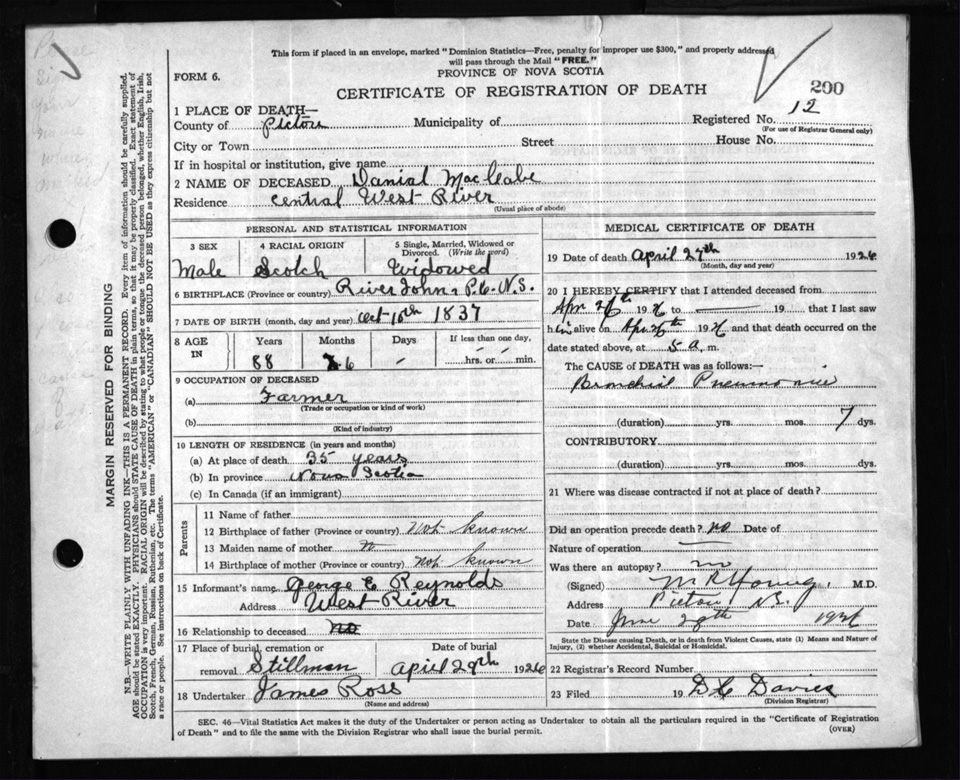 This form if placed in an envelope, marked "Dominion Statistics—Free, penalty for improper use $300," and properly addressed
will pass through the Mail "FREE."
FORM 6.
PROVINCE OF NOVA SCOTIA
CERTIFICATE OF REGISTRATION OF DEATH
200
1 PLACE OF DEATH—
County of Pictou Municipality of Registered No. 12
(For use of Registrar General only)
City or Town Street House No.
If in hospital or institution, give name
2 NAME OF DECEASED Danial MacLeabe
Residence Central West River
(Usual place of abode)
PERSONAL AND STATISTICAL INFORMATION
3 SEX 4 RACIAL ORIGIN 5 Single, Married, Widowed or
Divorced. (Write the word)
Male Scotch Widowed
6 BIRTHPLACE (Province or country) River John P.C. N.S.
7 DATE OF BIRTH (month, day and year) Oct 10th 1837
8 AGE IN Years Months Days If less than one day,
88 6 hrs. or min.
9 OCCUPATION OF DECEASED
(a) Farmer
(Trade or occupation or kind of work)
(b)
(Kind of industry)
10 LENGTH OF RESIDENCE (in years and months)
(a) At place of death 35 years
(b) In province Nova Scotia
(c) In Canada (if an immigrant)
Parents
11 Name of father
12 Birthplace of father (Province or country) Not known
13 Maiden name of mother
14 Birthplace of mother (Province or country) not known
15 Informant's name George E Reynolds
Address West River
16 Relationship to deceased no
17 Place of burial, cremation or Date of burial
removal Stillman April 29th 1926
18 Undertaker James Ross
(Name and address)
MEDICAL CERTIFICATE OF DEATH
19 Date of death April 27th 1926
(Month, day and year)
20 I HEREBY CERTIFY that I attended deceased from
Apr. 26th 1926 to 19 that I last saw
him alive on Apr. 26th 1926 and that death occurred on the
date stated above, at 5 a. m.
The CAUSE of DEATH was as follows:—
Bronchial Pneumonia
(duration) yrs. mos. 7 dys.
CONTRIBUTORY
(duration) yrs. mos. dys.
21 Where was disease contracted if not at place of death?
Did an operation precede death? no Date of
Nature of operation
Was there an autopsy? no
(Signed) M R Young, M.D.
Address Pictou N.S.
Date June 29th 1926
State the Disease causing Death, or in death from Violent Causes, state (1) Means and Nature of
Injury, (2) whether Accidental, Suicidal or Homicidal.
22 Registrar's Record Number
23 Filed 19 D C Davies
(Division Registrar)
SEC. 46—Vital Statistics Act makes it the duty of the Undertaker or person acting as Undertaker to obtain all the particulars required in the "Certificate of Registration
of Death" and to file the same with the Division Registrar who shall issue the burial permit.
(OVER)
MARGIN RESERVED FOR BINDING
N.B.—WRITE PLAINLY WITH UNFADING INK—THIS IS A PERMANENT RECORD. Every item of information should be carefully supplied.
AGE should be stated EXACTLY. PHYSICIANS should STATE CAUSE OF DEATH in plain terms, so that it may be properly classified. Exact statement of
OCCUPATION is very important. RACIAL ORIGIN will be described by stating to what people or tongue the deceased person belonged, whether English, Irish,
Scotch, French, German, Russian, Ruthenian, etc. The terms "AMERICAN" or "CANADIAN" SHOULD NOT BE USED as they express citizenship but not
a race or people. See instructions on back of Certificate.